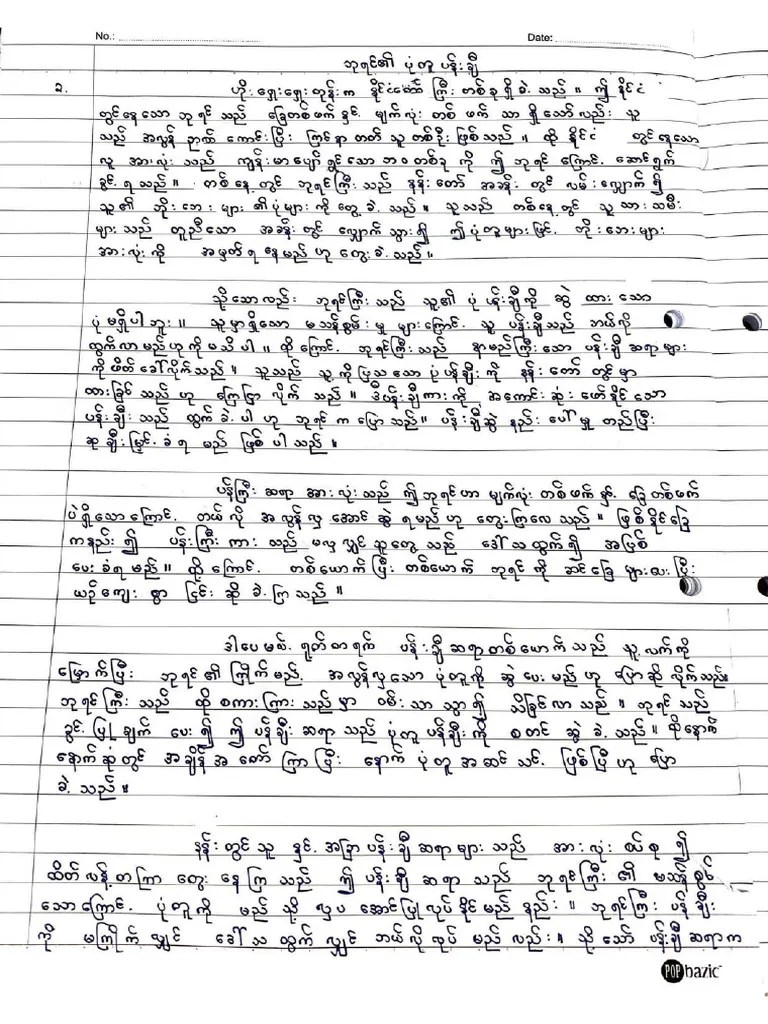 No.: Date:
ဘုရင်၏ ပုံတူ ပန်းချီ
၁. ဟိုးရှေးရှေးတုန်းက နိုင်ငံတော်ကြီး တစ်ခုရှိခဲ့သည်။ ဤနိုင်ငံ
တွင်နေသော ဘုရင်သည် ခြေတစ်ဖက်နှင့် မျက်လုံးတစ်ဖက်သာ ရှိသော်လည်း သူ
သည် အလွန်ဉာဏ်ကောင်းပြီး ကြင်နာတတ်သူ တစ်ဦးဖြစ်သည်။ ထိုနိုင်ငံ တွင်နေသော
လူအားလုံးသည် ကျန်းမာပျော်ရွှင်သောဘဝတစ်ခုကို ဤဘုရင်ကြောင့် ဆောင်ရွက်
ခွင့်ရသည်။ တစ်နေ့တွင် ဘုရင်ကြီးသည် နန်းတော်အခန်းတွင် လမ်းလျှောက်၍
သူ၏ ဘိုးဘေးများ၏ပုံများကိုတွေ့ခဲ့သည်။ သူသည် တစ်နေ့တွင် သူ့သားသမီး
များသည် တူညီသော အခန်းတွင် လျှောက်သွား၍ ဤပုံတူများဖြင့် ဘိုးဘေးများ
အားလုံးကို အမှတ်ရနေမည်ဟု တွေးခဲ့သည်။
သို့သော်လည်း ဘုရင်ကြီးသည် သူ၏ပုံပန်းချီကို ဆွဲထားသော
ပုံမရှိပါဘူး။ သူ့မှာရှိသော မသန်စွမ်းမှုများကြောင့် သူ့ပန်းချီသည် ဘယ်လို
ထွက်လာမည်ဟုကို မသိပါ။ ထို့ကြောင့် ဘုရင်ကြီးသည် နာမည်ကြီးသော ပန်းချီဆရာများ
ကိုဖိတ်ခေါ်လိုက်သည်။ သူသည် သူ့ကိုပြသသော ပုံပန်းချီးကို နန်းတော်တွင်မှာ
ထားခြင်သည်ဟု ကြေငြာလိုက်သည်။ ဒီပန်းချီကားကို အကောင်းဆုံးဖော်နိုင်သော
ပန်းချီးသည် ထွက်ခဲ့ပါဟု ဘုရင်ကပြောသည်။ ပန်းချီဆွဲနည်းပေါ်မူတည်ပြီး
ဆုချီးမြှင့်ခံရမည် ဖြစ်ပါသည်။
ပန်ကြီးဆရာအားလုံးသည် ဤဘုရင်ဟာ မျက်လုံးတစ်ဖက်နှင့် ခြေတစ်ဖက်
ပဲရှိသောကြောင့် ဘယ်လိုအလွန်လှအောင်ဆွဲရမည်ဟု တွေးကြလေသည်။ ဖြစ်နိုင်ခြေ
ကနည်း၍ ပန်းကြီးကားသည် မလှလျှင်သူတွေသည် ဒေါ်သထွက်၍ အပြစ်
ပေးခံရမည်။ ထို့ကြောင့် တစ်ယောက်ပြီးတစ်ယောက် ဘုရင်ကို ဆင်ခြေများပေးပြီး
ယဉ်ကျေးစွာ ငြင်းဆိုခဲ့ကြသည်။
ဒါပေမယ့် ရုတ်တရက် ပန်းချီဆရာတစ်ယောက်သည် သူ့လက်ကို
မြှောက်ပြီး ဘုရင်၏ကြိုက်မည့် အလွန်လှသောပုံတူကို ဆွဲပေးမည်ဟု ပြောဆိုလိုက်သည်။
ဘုရင်ကြီးသည် ထိုစကားကြားသည်မှာ ဝမ်းသာသွား၍ သိခြင်လာသည်။ ဘုရင်သည်
ခွင့်ပြုချက် ပေး၍ ဤပန်ချီးဆရာသည် ပုံတူပန်ချီးကို စတင်ဆွဲခဲ့သည်။ ထို့နောက်
နောက်ဆုံးတွင် အချိန်အတော်ကြာပြီး နောက် ပုံတူအဆင်သင့် ဖြစ်ပြီဟု ပြော
ခဲ့သည်။
နန်းတွင်းသူ နှင့် အခြာပန်းချီဆရာများသည် အားလုံးစုစု၍
ထိတ်လန့်တကြာ တွေးနေကြသည် ဤပန်းချီဆရာသည် ဘုရင်ကြီး၏ မသန်စွမ်
သောကြောင့် ပုံတူကို မည်သို့လှပအောင်ပြုလုပ်နိုင်မည်နည်း။ ဘုရင်ကြီး ပန်ချီး
ကို မကြိုက်လျှင် ဒေါ်သထွက်လျှင် ဘယ်လိုလုပ်မည်လည်း။ သို့သော် ပန်းချီဆရာက
POP bazic